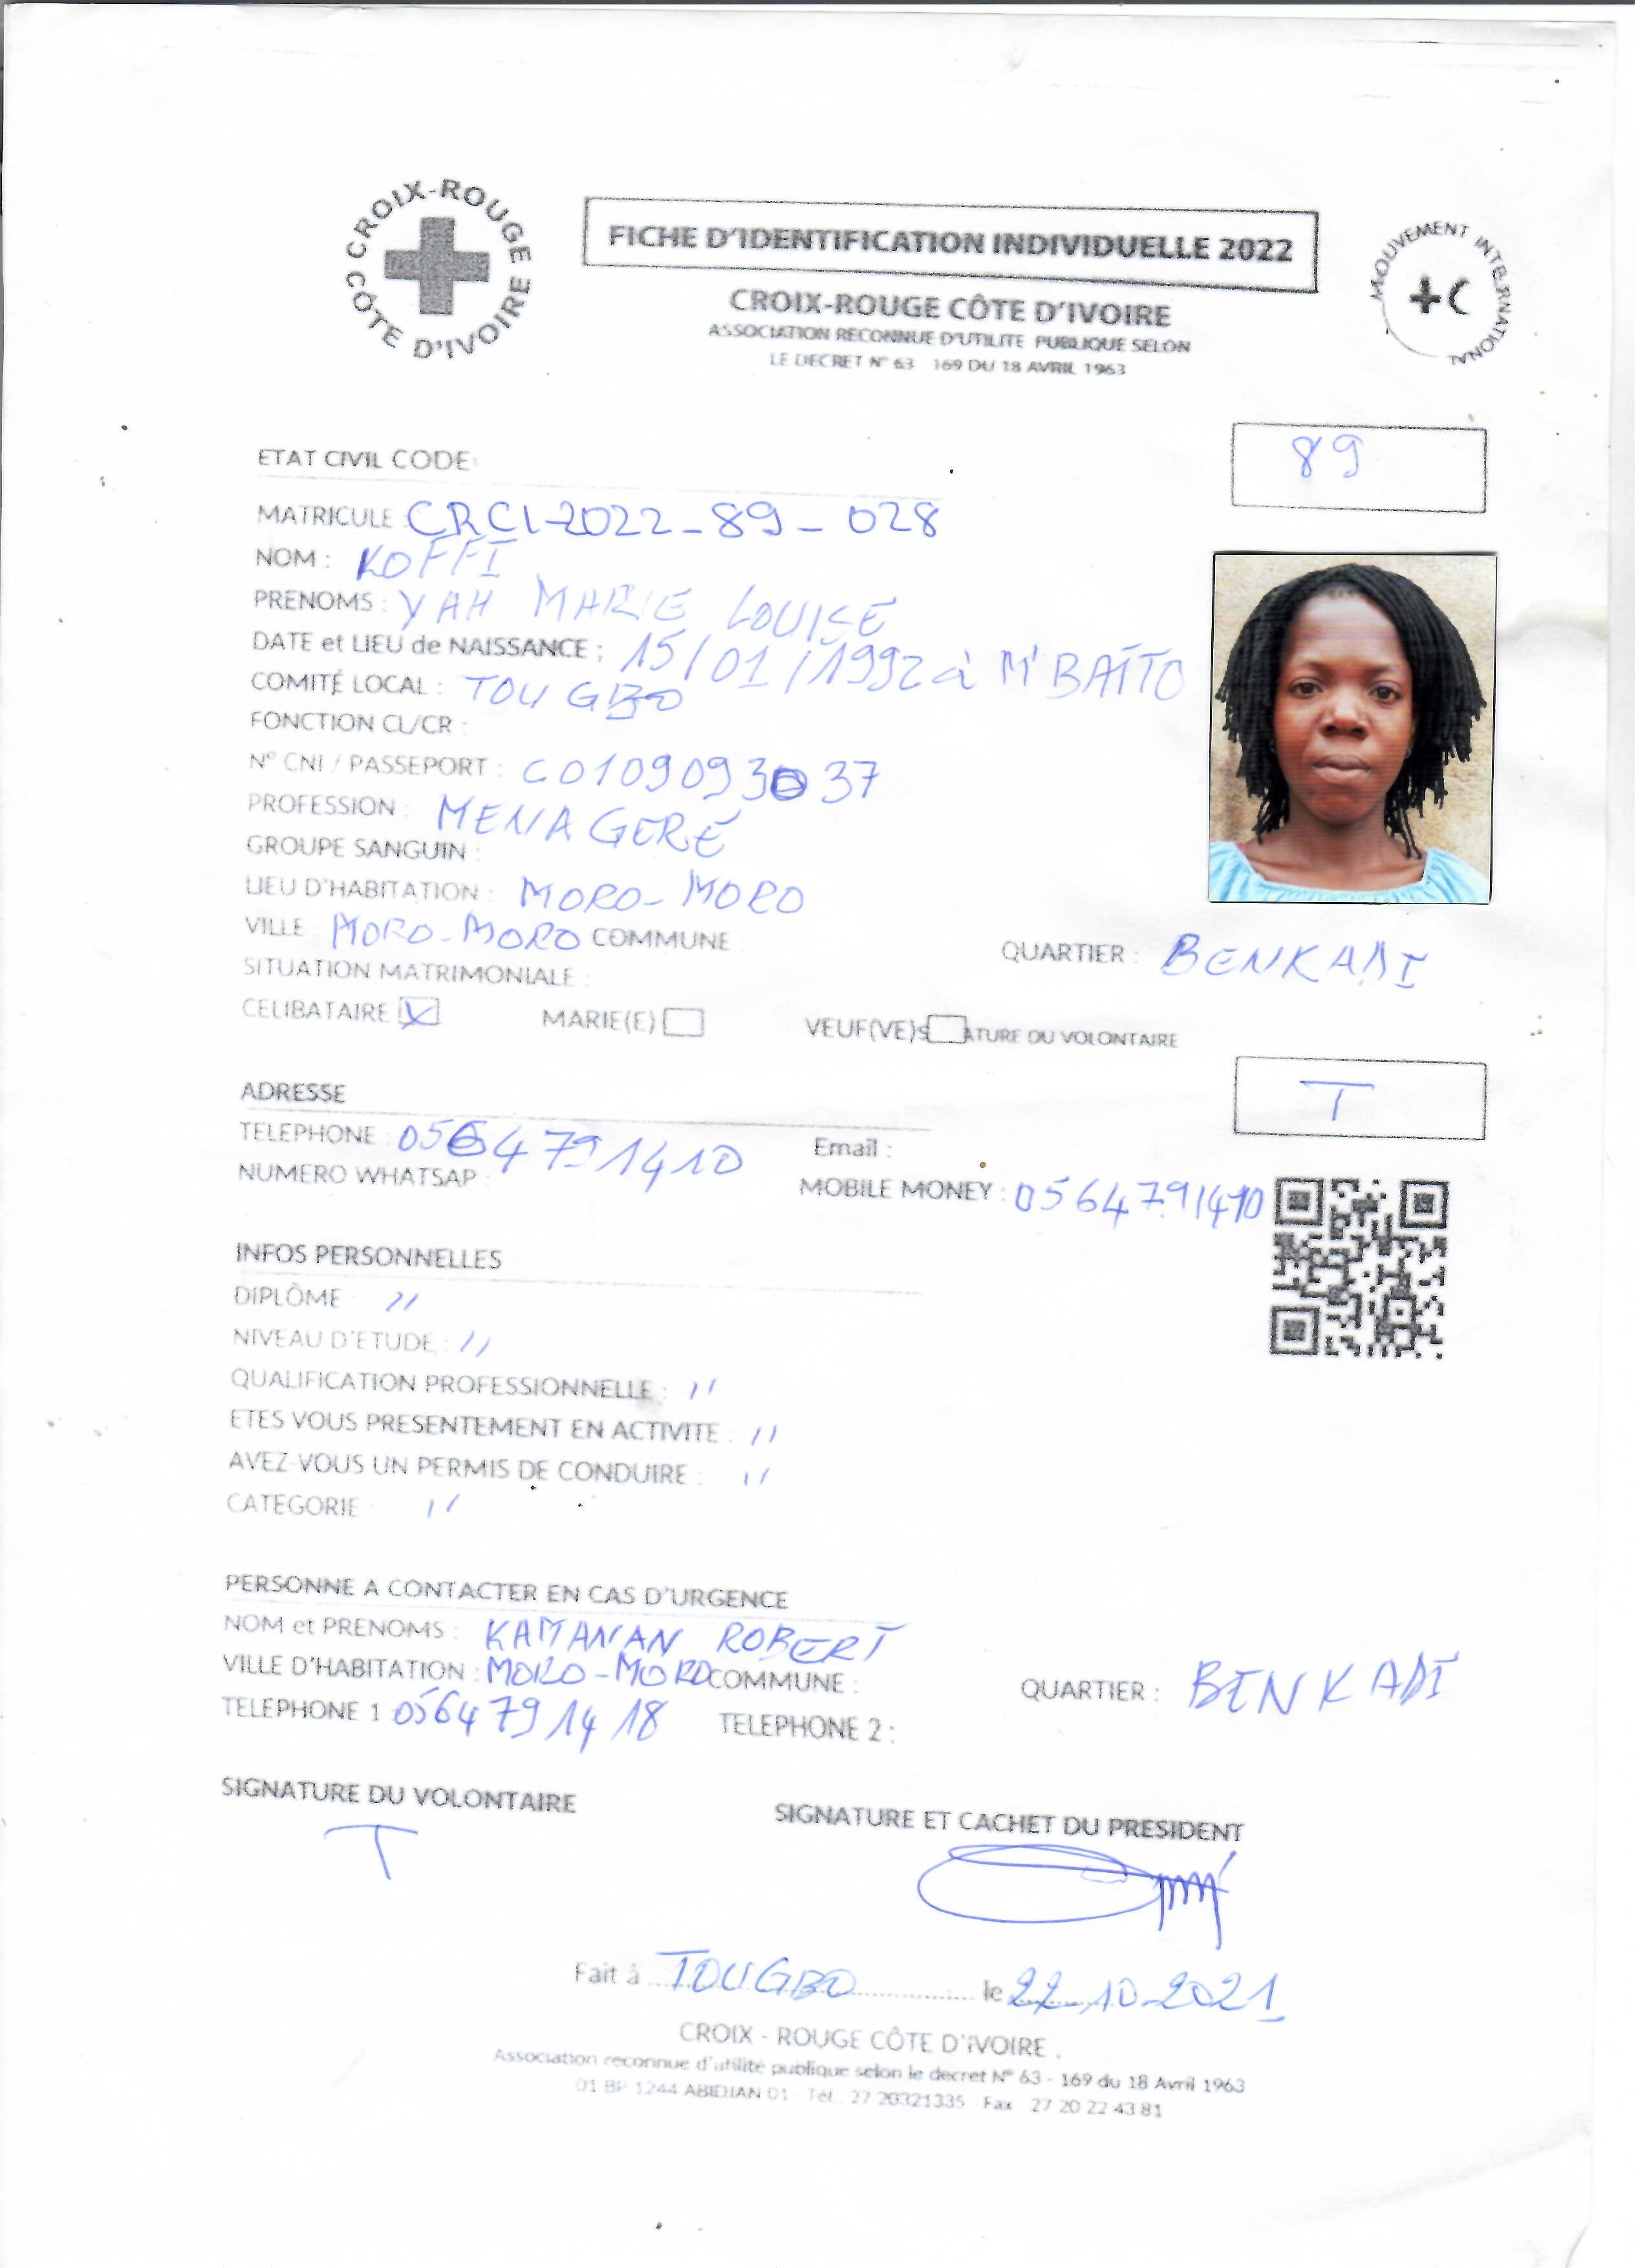 CROIX-ROUGE CÔTE D'IVOIRE
FICHE D'IDENTIFICATION INDIVIDUELLE 2022
CROIX-ROUGE CÔTE D'IVOIRE
ASSOCIATION RECONNUE D'UTILITE PUBLIQUE SELON
LE DECRET N° 63 169 DU 18 AVRIL 1963
MOUVEMENT INTERNATIONAL
ETAT CIVIL CODE
89
MATRICULE CRCI-2022-89-028
NOM : KOFFI
PRENOMS : YAH MARIE LOUISE
DATE et LIEU de NAISSANCE : 15/01/1992 à M'BAÏTO
COMITÉ LOCAL : TOUGBO
FONCTION CL/CR :
N° CNI / PASSEPORT : C0109093037
PROFESSION : MENAGERE
GROUPE SANGUIN :
LIEU D'HABITATION : MORO-MORO
VILLE MORO-MORO COMMUNE QUARTIER : BENKADI
SITUATION MATRIMONIALE :
CELIBATAIRE X MARIE(E) VEUF(VE)S ATURE DU VOLONTAIRE
T
ADRESSE
TELEPHONE : 0564791410 Email :
NUMERO WHATSAP : MOBILE MONEY : 0564791410
INFOS PERSONNELLES
DIPLÔME 11
NIVEAU D'ETUDE : 11
QUALIFICATION PROFESSIONNELLE : 11
ETES VOUS PRESENTEMENT EN ACTIVITE : 11
AVEZ-VOUS UN PERMIS DE CONDUIRE : 11
CATEGORIE 11
PERSONNE A CONTACTER EN CAS D'URGENCE
NOM et PRENOMS : KAMANAN ROBERT
VILLE D'HABITATION : MORO-MORO COMMUNE : QUARTIER : BENKADI
TELEPHONE 1 0564791418 TELEPHONE 2 :
SIGNATURE DU VOLONTAIRE SIGNATURE ET CACHET DU PRESIDENT
T
Fait à TOUGBO le 22-10-2021
CROIX - ROUGE CÔTE D'IVOIRE .
Association reconnue d'utilité publique selon le decret N° 63 - 169 du 18 Avril 1963
01 BP 1244 ABIDJAN 01 - Tel : 27 20321335 Fax 27 20 22 43 81